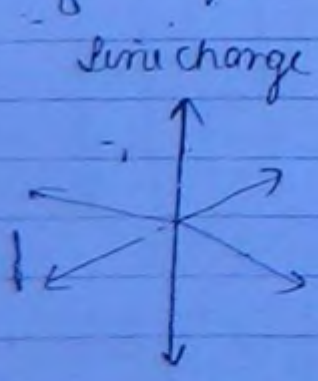 Line charge